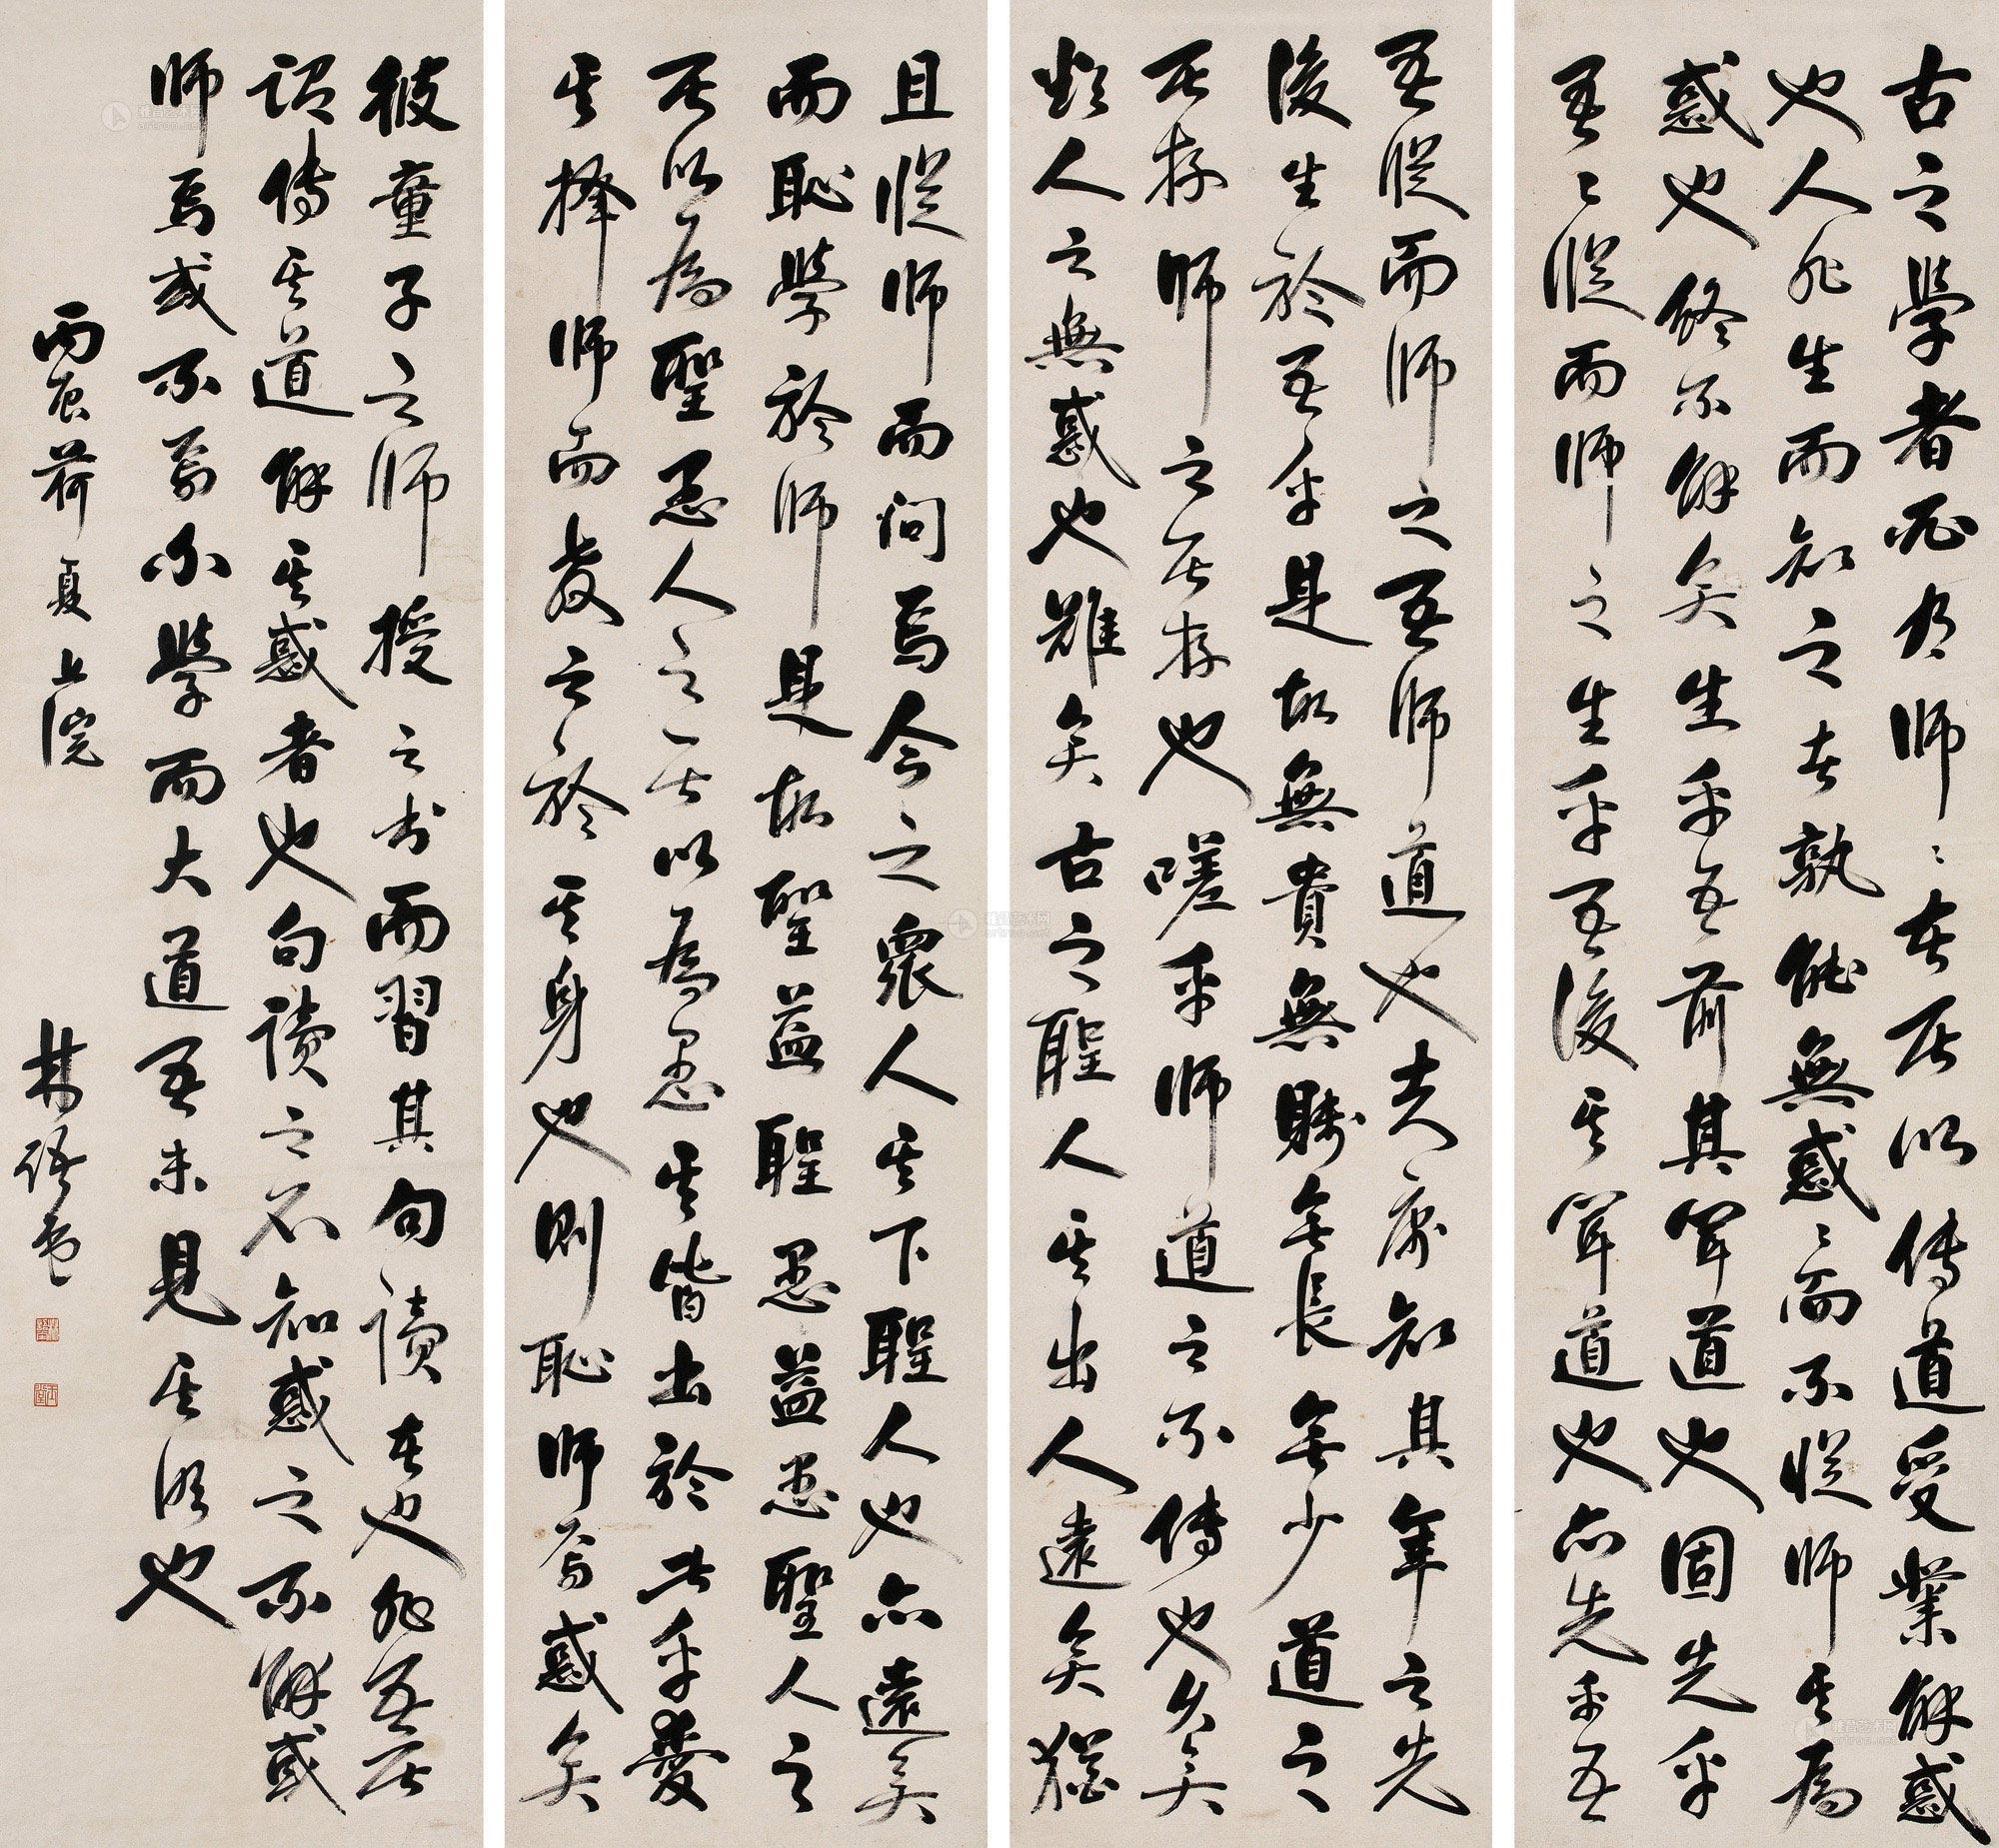 古之學者必有師〻者所以傳道受業解惑
也人非生而知之者孰能無惑〻而不從師其為
惑也終不解矣生乎吾前其聞道也固先乎
吾〻從而師之生乎吾後其聞道也亦先乎吾
吾從而師之吾師道也夫庸知其年之先
後生於吾乎是故無貴無賤無長無少道之
所存師之所存也嗟乎師道之不傳也久矣
欲人之無惑也難矣古之聖人其出人遠矣猶
且從師而問焉今之眾人其下聖人也亦遠矣
而恥學於師是故聖益聖愚益愚聖人之
所以為聖愚人之所以為愚其皆出於此乎愛
其擇師而教之於其身也則恥師焉惑矣
彼童子之師授之書而習其句讀者也非吾所
謂傳其道解其惑者也句讀之不知惑之不解或
師焉或不焉小學而大道吾未見其明也
丙辰荷夏上浣
林語堂